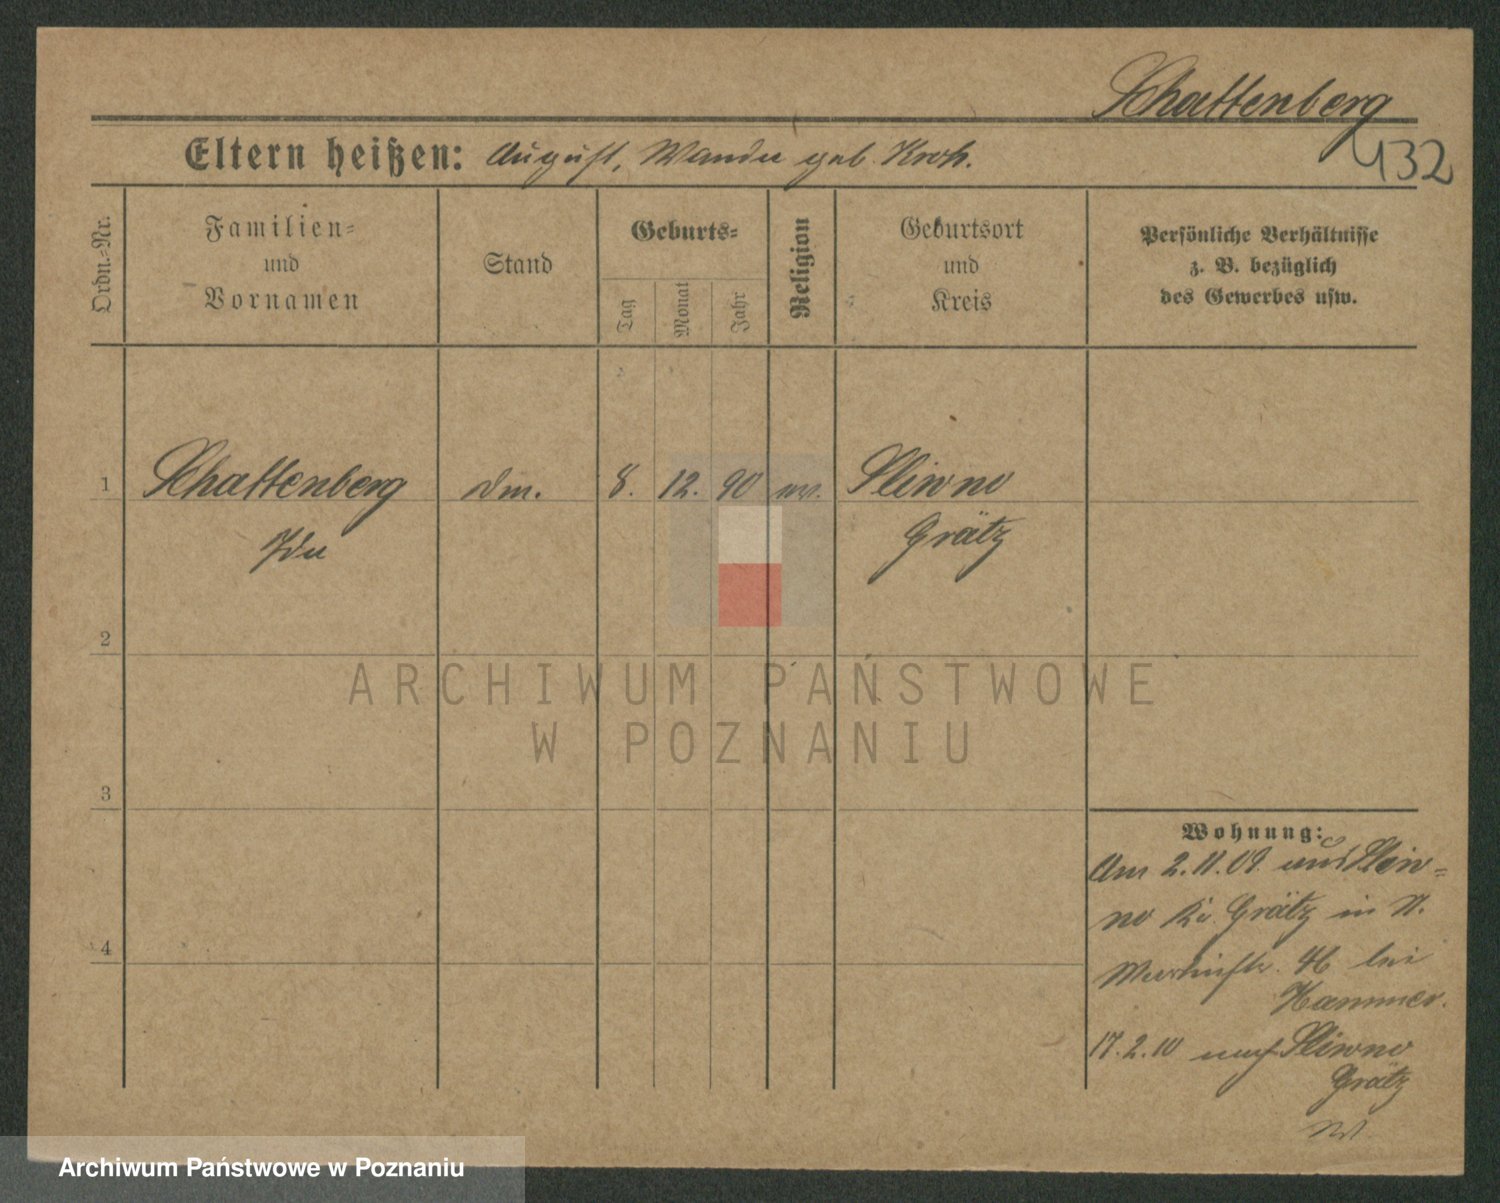 Schattenberg
432
Eltern heißen: August, Wanda geb. Kroh.
Ordn.-Nr.
Familien-
und
Vornamen
Stand
Geburts-
Tag
Monat
Jahr
Religion
Geburtsort
und
Kreis
Persönliche Verhältnisse
z. B. bezüglich
des Gewerbes usw.
1
Schattenberg
Ida
8.
12.
90
ev.
Sliwno
Grätz
2
ARCHIWUM PAŃSTWOWE
W POZNANIU
3
4
Wohnung:
Am 2.11.09. aus Sliw-
no Kr. Grätz in
46 bei
Hammer.
17.2.10 nach Sliwno
Grätz
Archiwum Państwowe w Poznaniu